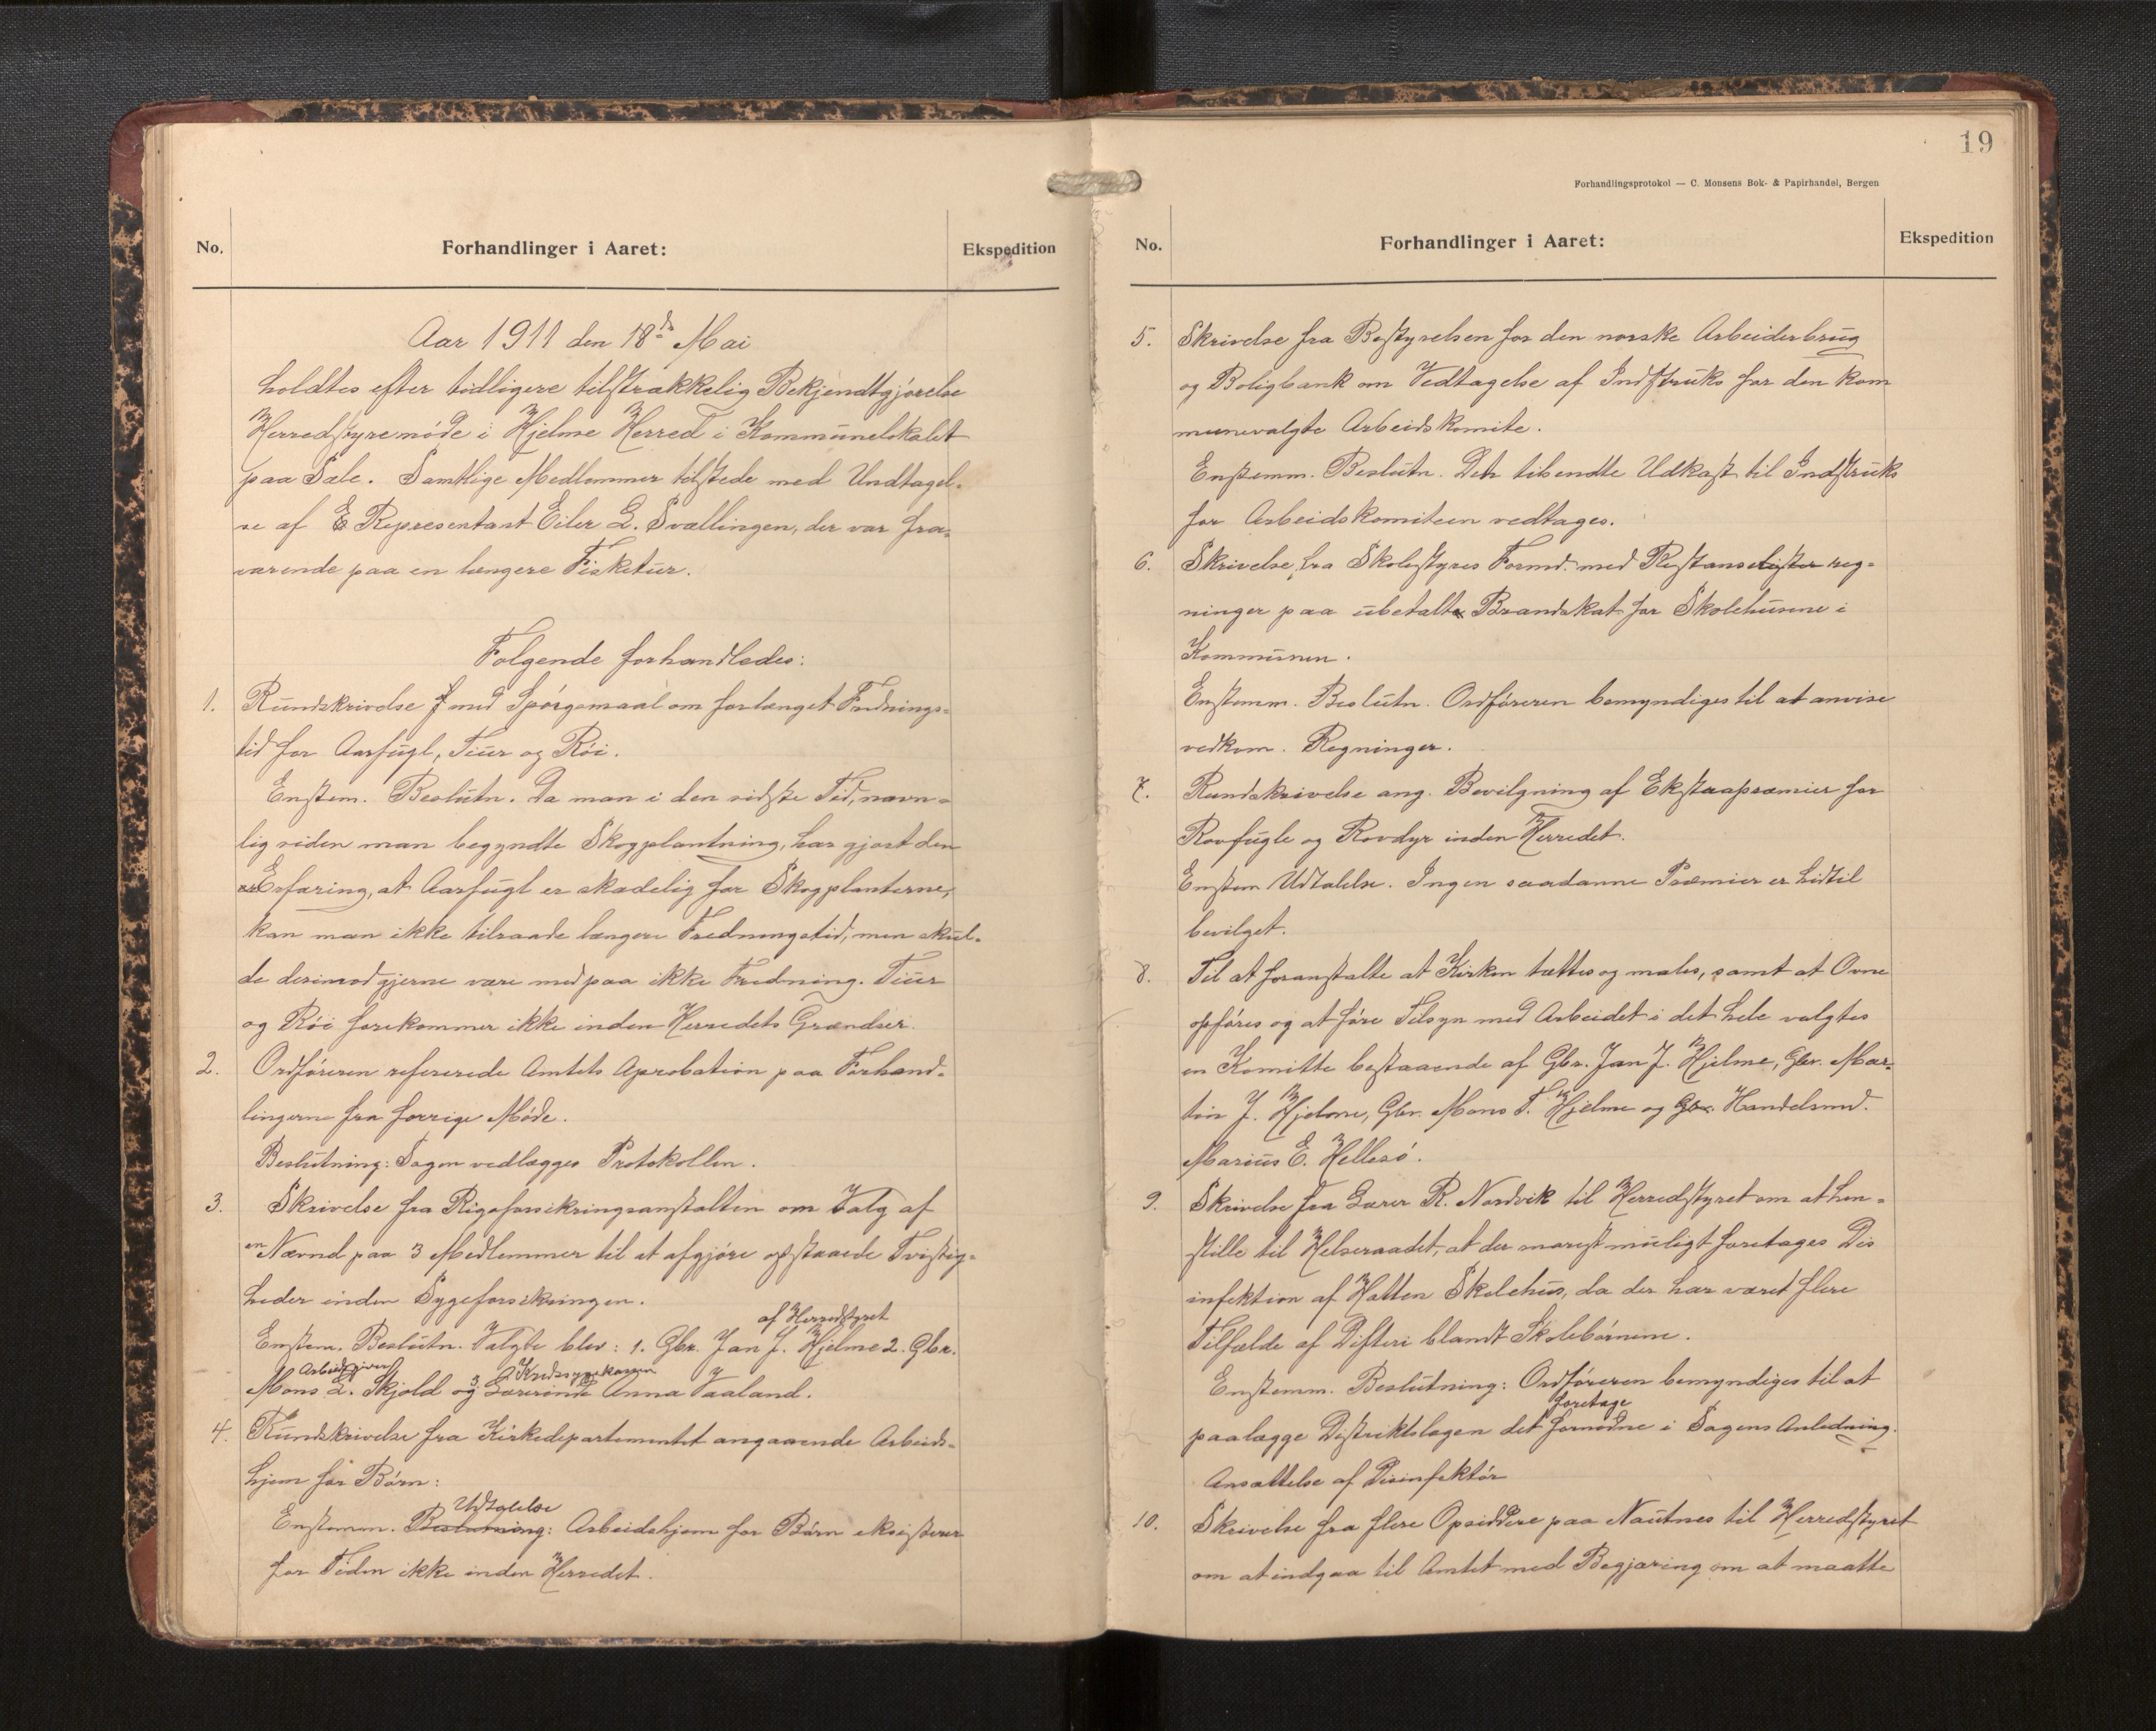 No.
Forhandlinger i Aaret:
Ekspedition
Aar 1911 den 18de Mai
holdtes efter tidligere tilstrækkelig Bekjendtgjørelse
Herredstyremøde i Hjelme Herred i Kommunelokalet
paa Sæle. Samtlige Medlemmer tilstede med Undtagel-
se af Representant Eiler L. Svællingen, der var fra-
værende paa en længere Fisketur.
Følgende forhandledes:
1. Rundskrivelse med Spørgsmaal om forlænget Frednings-
tid for Aarfugl, Tiur og Røi.
Enstem. Beslutn. Da man i den sidste Tid, navn-
lig siden man begyndte Skogplantning, har gjort den
Erfaring, at Aarfugl er skadelig for Skogplanterne,
kan man ikke tilraade længere Fredningstid, men skul-
de derimod gjerne være med paa ikke Fredning. Tiur
og Røi forekommer ikke inden Herredets Grændser.
2. Ordføreren refererede Amtets Aprobation paa Forhand-
lingerne fra forrige Møde.
Beslutning: Sagen vedlægges Protokollen.
3. Skrivelse fra Rigsforsikringsanstalten om Valg af
en Nævnd paa 3 Medlemmer til at afgjøre opstaaede Tvistig-
heder inden Sygeforsikringen.
af Herredstyret
Enstem. Beslutn. Valgte blev: 1. Gbr. Jan J. Hjelme 2. Gbr.
Arbeidsgiver Kredssygekassen
Mons L. Skjold og 3 Lærerinde Anna Vaaland.
4. Rundskrivelse fra Kirkedepartementet angaaende Arbeids-
hjem for Børn:
Udtalelse
Enstemm. Beslutning: Arbeidshjem for Børn eksisterer
for Tiden ikke inden Herredet.
19
Forhandlingsprotokol — C. Monsens Bok- & Papirhandel, Bergen
No.
Forhandlinger i Aaret:
Ekspedition
5. Skrivelse fra Bestyrelsen for den norske Arbeiderbrug
og Boligbank om Vedtagelse af Indstruks for den kom
munevalgte Arbeidskomite.
Enstemm. Beslutn. Det tilsendte Udkast til Indstruks
for Arbeidskomiteen vedtages.
6. Skrivelse fra Skolestyres Formd. med Restanselister reg-
ninger paa ubetalt Brandskat for Skolehusene i
Kommunen.
Enstemm. Beslutn. Ordføreren bemyndiges til at anvise
vedkom. Regninger.
7. Rundskrivelse ang. Bevilgning af Ekstrapræmier for
Rovfugle og Rovdyr inden Herredet.
Enstem Udtalelse. Ingen saadanne Præmier er hidtil
bevilget.
8. Til at foranstalte at Kirken tættes og males, samt at Ovne
opføres og at føre Tilsyn med Arbeidet i det hele valgtes
en Komitte bestaaende af Gbr. Jan J. Hjelme, Gbr. Mar-
tin J. Hjelme, Gbr. Mons T. Hjelme og Gbr. Handelsmd.
Marius E. Hellesø.
9. Skrivelse fra Lærer R. Nordvik til Herredstyret om at hen-
stille til Helseraadet, at der snarest muligt foretages Dis
infektion af Hatten Skolehus, da der har været flere
Tilfælde af Difteri blandt Skolebørnene.
Enstemm. Beslutning: Ordføreren bemyndiges til at
foretage
paalægge Distriktslægen det fornødne i Sagens Anledning.
Ansættelse af Disinfektør
10. Skrivelse fra flere Opsiddere paa Nautnes til Herredstyret
om at indgaa til Amtet med Begjæring om at maatte